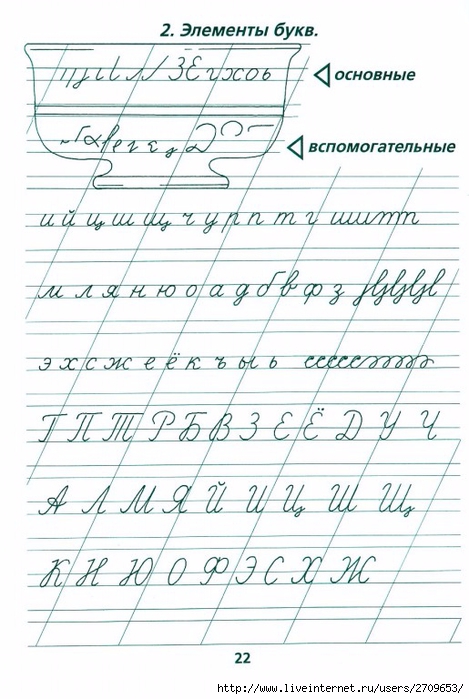 2. Элементы букв.
основные
вспомогательные
и й ц ш щ ч у р п т г
м л я н ю о а д б в ф з
э х с ж е ё к ъ ы ь
Г П Т Р Б В З Е Ё Д У Ч
А Л М Я Й И Ц Ш Щ
К Н Ю О Ф Э С Х Ж
22
http://www.liveinternet.ru/users/2709653/